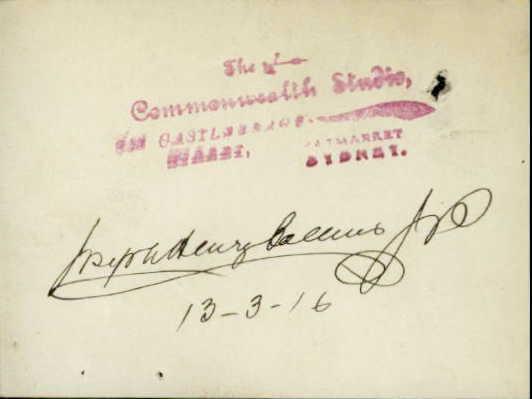 The
Commonwealth Studio,
CASTLEREAGH
STREET, HAYMARKET
SYDNEY.
Joseph Henry Collins JP
13-3-16